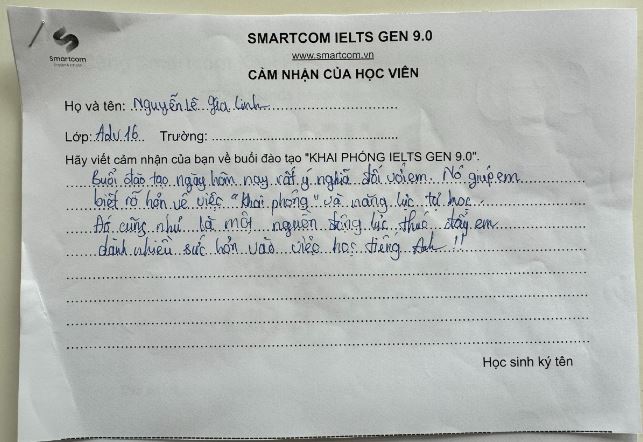 Smartcom
SMARTCOM IELTS GEN 9.0
www.smartcom.vn
CẢM NHẬN CỦA HỌC VIÊN
Họ và tên: Nguyễn Lê Gia Linh
Lớp: Adv 16 Trường:
Hãy viết cảm nhận của bạn về buổi đào tạo "KHAI PHÓNG IELTS GEN 9.0".
Buổi đào tạo ngày hôm nay rất ý nghĩa đối với em. Nó giúp em
biết rõ hơn về việc "khai phóng" và năng lực tự học.
Đó cũng như là một nguồn động lực thúc đẩy em
dành nhiều sức hơn vào việc học tiếng Anh !!
Học sinh ký tên